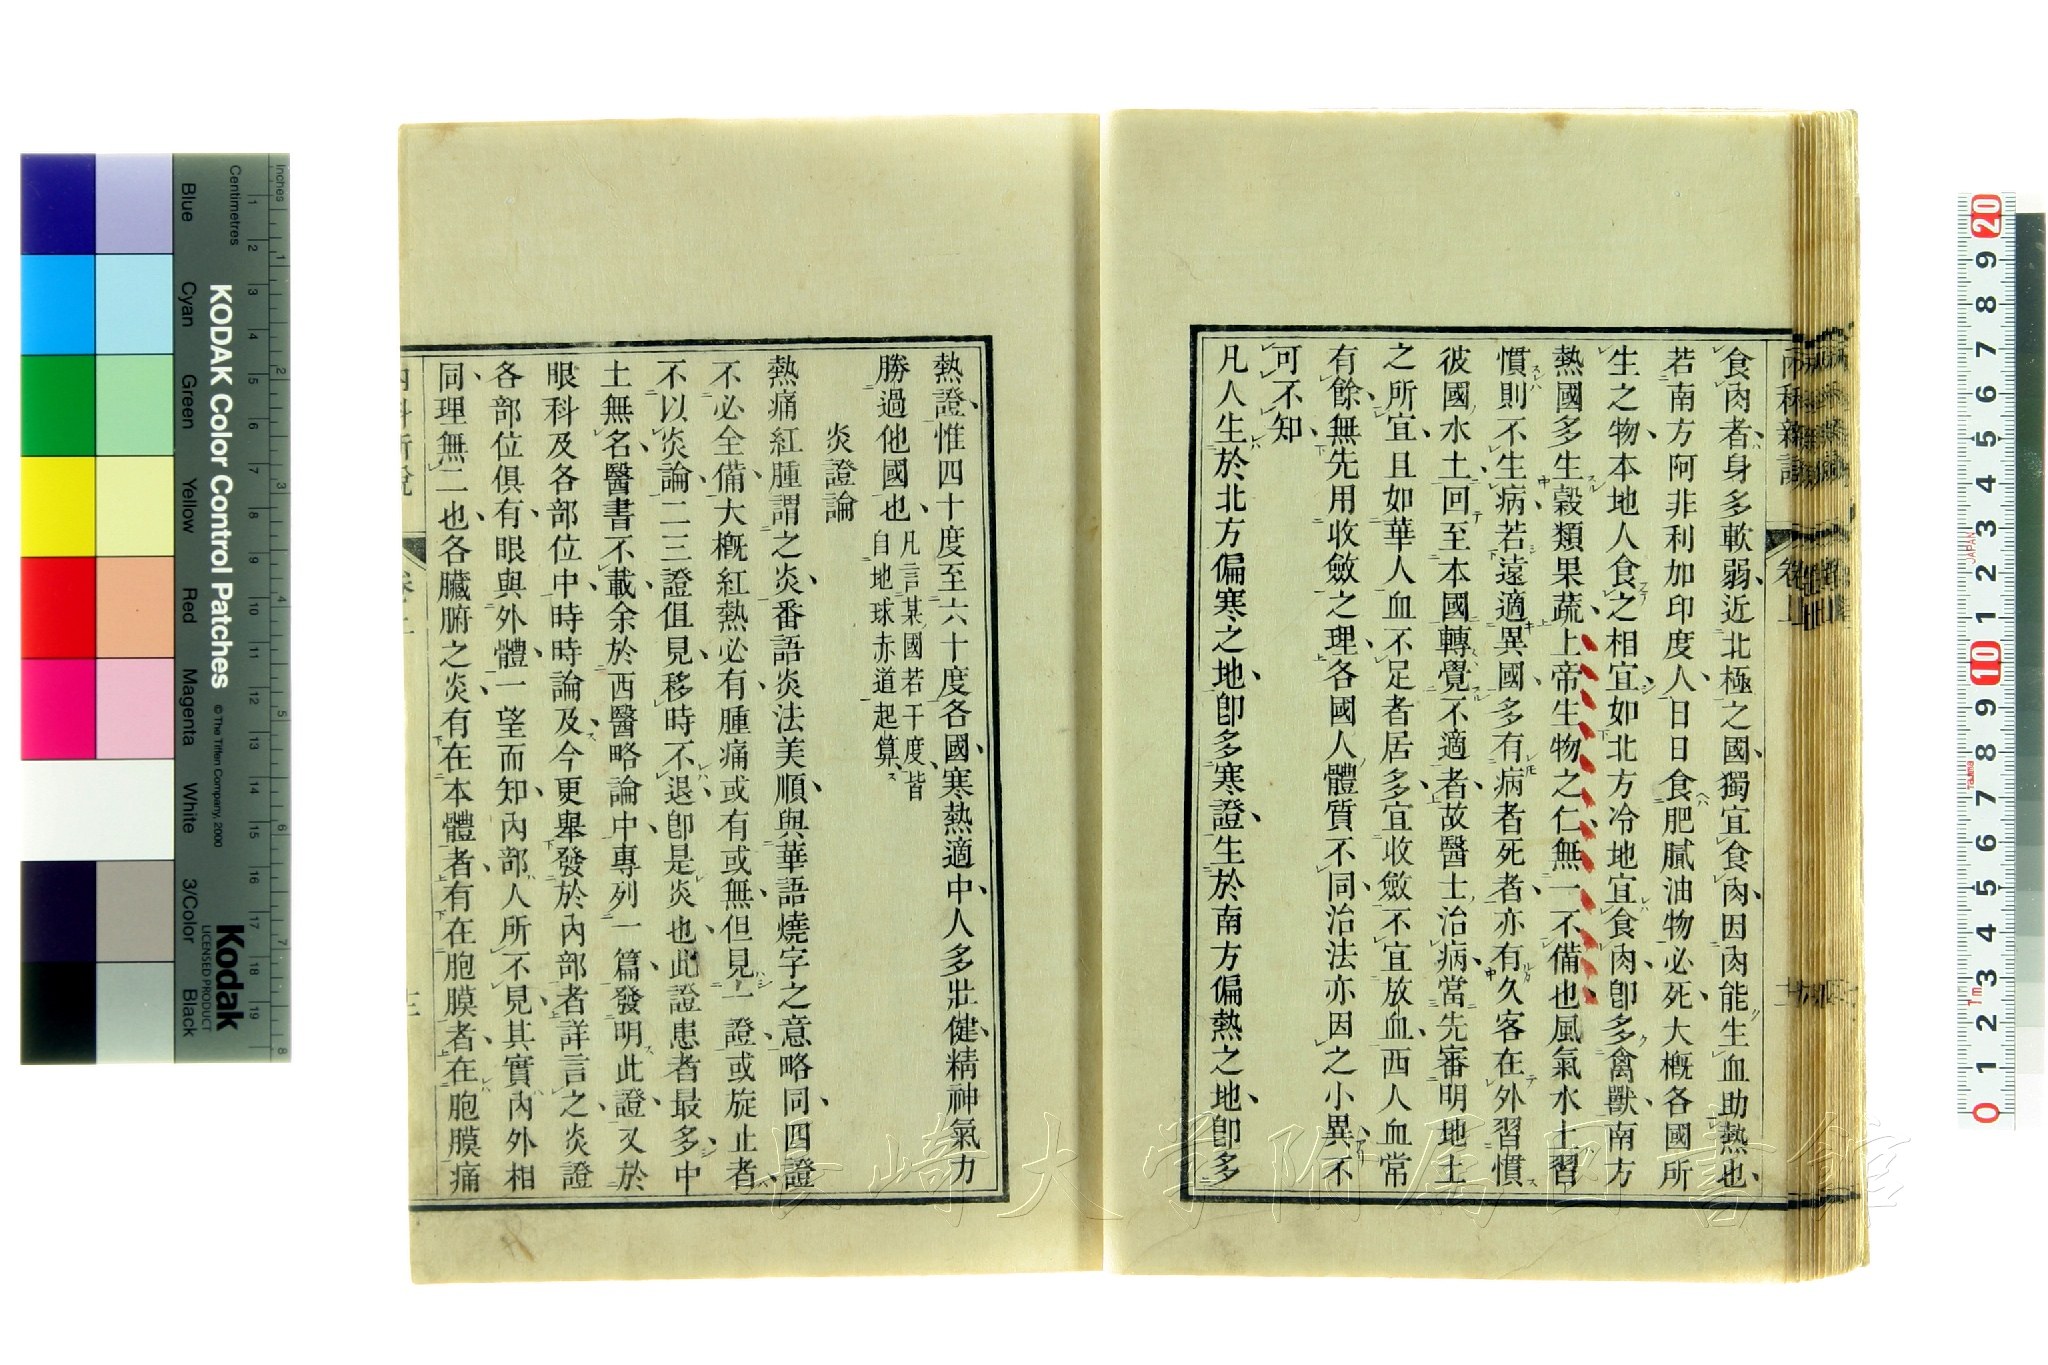 食肉者身多軟弱近北極之國獨宜食肉因肉能生血助熱也
若南方阿非利加印度人日日食肥膩油物必死大槪各國所
生之物本地人食之相宜如北方冷地宜食肉卽多禽獸南方
熱國多生穀類果蔬上帝生物之仁無一不備也風氣水土習
慣則不生病若遠適異國多有病者死者亦有久客在外習慣
彼國水土回至本國轉覺不適者故醫士治病當先審明地土
之所宜且如華人血不足者居多宜收斂不宜放血西人血常
有餘無先用收斂之理各國人體質不同治法亦因之小異不
可不知
凡人生於北方偏寒之地卽多寒證生於南方偏熱之地卽多
熱證惟四十度至六十度各國寒熱適中人多壯健精神氣力
勝過他國也凡言某國若干度皆
自地球赤道起算
炎證論
熱痛紅腫謂之炎番語炎法美順與華語燒字之意略同四證
不必全備大槪紅熱必有腫痛或有或無但見一證或旋止者
不以炎論二三證俱見移時不退卽是炎也此證患者最多中
土無名醫書不載余於西醫略論中專列一篇發明此證又於
眼科及各部位中時時論及今更舉發於內部者詳言之炎證
各部位俱有眼與外體一望而知內部人所不見其實內外相
同理無二也各臟腑之炎有在本體者有在胞膜者在胞膜痛
內科新說
卷上
KODAK Color Control Patches
© The Tiffen Company, 2000
Kodak
LICENSED PRODUCT
Inches
Centimetres
Blue
Cyan
Green
Yellow
Red
Magenta
White
3/Color
Black
1 2 3 4 5 6 7 8 9 10 11 12 13 14 15 16 17 18 19
1 2 3 4 5 6 7 8
20 9 8 7 6 5 4 3 2 1 10 9 8 7 6 5 4 3 2 1 0
JAPAN
長崎大学附属図書館